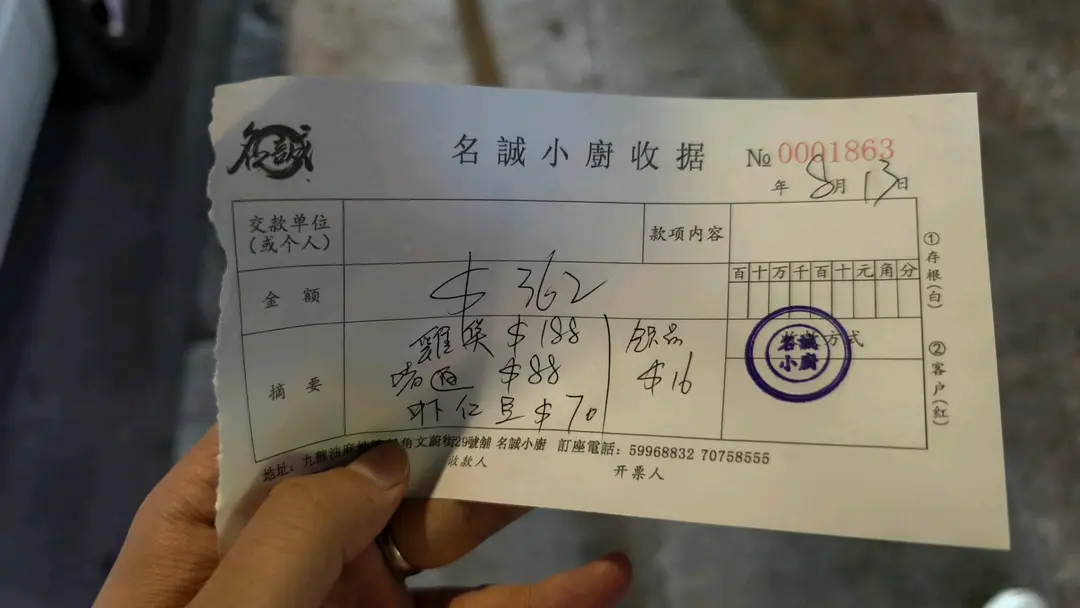 名誠
名誠小廚收据 № 0001863
年 8月 13日
交款单位
(或个人)
款项内容
金 额
$ 362
百 十 万 千 百 十 元 角 分
摘 要
$188
$88
虾仁 $70
$16
方式
名誠
小廚
①存根(白)
②客户(红)
地址:九龍油麻地 角文蔚街29號舖 名誠小廚 訂座電話:59968832 70758555
收款人
开票人